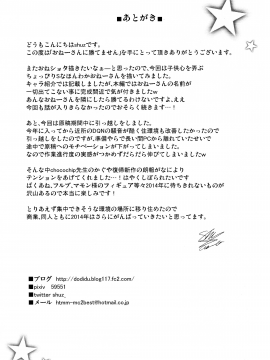 ■あとがき■
どうもこんにちはshuzです。
この度は「おねーさんに勝てません」を手にとって頂きありがとうございます。
またおねショタ描きたいなぁーと思ったので、今回は子供心を弄ぶ
ちょっぴりSなほんわかおねーさんを描いてみました。
キャラ紹介では記載しましたが、本編ではおねーさんの名前が
一切出てこない事に完成間近で気が付きましたｗ
あんなおねーさんを嫁にしたら勝てるわけないですよ、ええ
今でも個人的に気に入ったのでおそらく続きます…！
あと、今回は原稿期間中に引っ越しをしました。
今年に入ってから近所のDQNの騒音が酷く住環境も改善したかったので
引っ越したのですが、準備やらで長い間PCから離れていたせいで
途中での原稿へのモチベーションが下がってしまいましたｗ
なので作業進行度の実感がつかめずだらだら伸びてしまいましたｗ
そんな中chocochip先生のかぐや復帰新作の朗報がなにより
テンションをあげてくれました…！はやくしぼられたいです
ぱくあね、フルプ、マモン様のフィギュア等々2014年に待ちきれないものが
沢山あるので本当に楽しみです！
とりあえず集中できそうな環境の場所に移り住めたので
商業、同人ともに2014年はさらにがんばっていきたいと思ってます。
■ブログ　http://dodidu.blog117.fc2.com/
■pixiv　59551
■twitter shuz_
■メール　htmm-mc2best@hotmail.co.jp